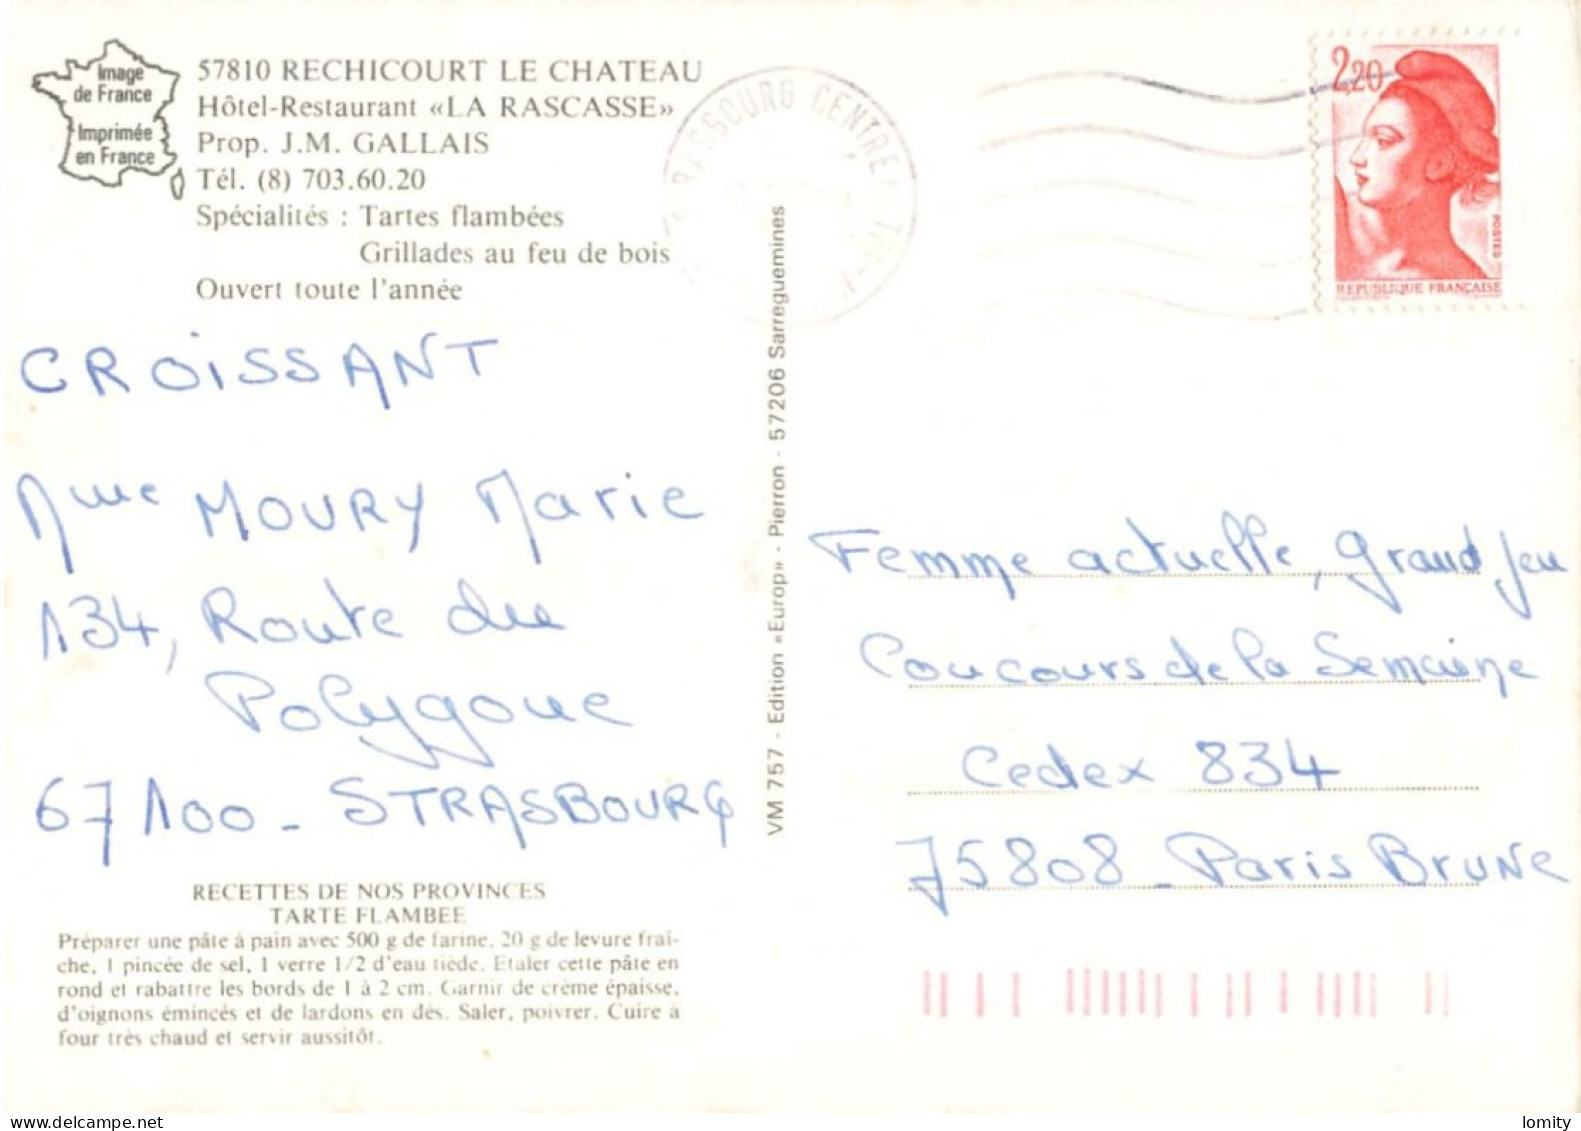 Image
de France
Imprimée
en France
57810 RECHICOURT LE CHATEAU
Hôtel-Restaurant «LA RASCASSE»
Prop. J.M. GALLAIS
Tél. (8) 703.60.20
Spécialités : Tartes flambées
Grillades au feu de bois
Ouvert toute l'année
CROISSANT
Mme MOURY Marie
134, Route du
Polygone
67100 - STRASBOURG
RECETTES DE NOS PROVINCES
TARTE FLAMBEE
Préparer une pâte à pain avec 500 g de farine, 20 g de levure fraî-
che, 1 pincée de sel, 1 verre 1/2 d'eau tiède. Etaler cette pâte en
rond et rabattre les bords de 1 à 2 cm. Garnir de crème épaisse,
d'oignons émincés et de lardons en dés. Saler, poivrer. Cuire à
four très chaud et servir aussitôt.
VM 757 - Edition «Europ» - Pierron - 57206 Sarreguemines
STRASBOURG CENTRE
2,20
POSTES
REPUBLIQUE FRANÇAISE
Femme actuelle, Grand Jeu
Concours de la Semaine
Cedex 834
75808 - Paris Brune
lomity